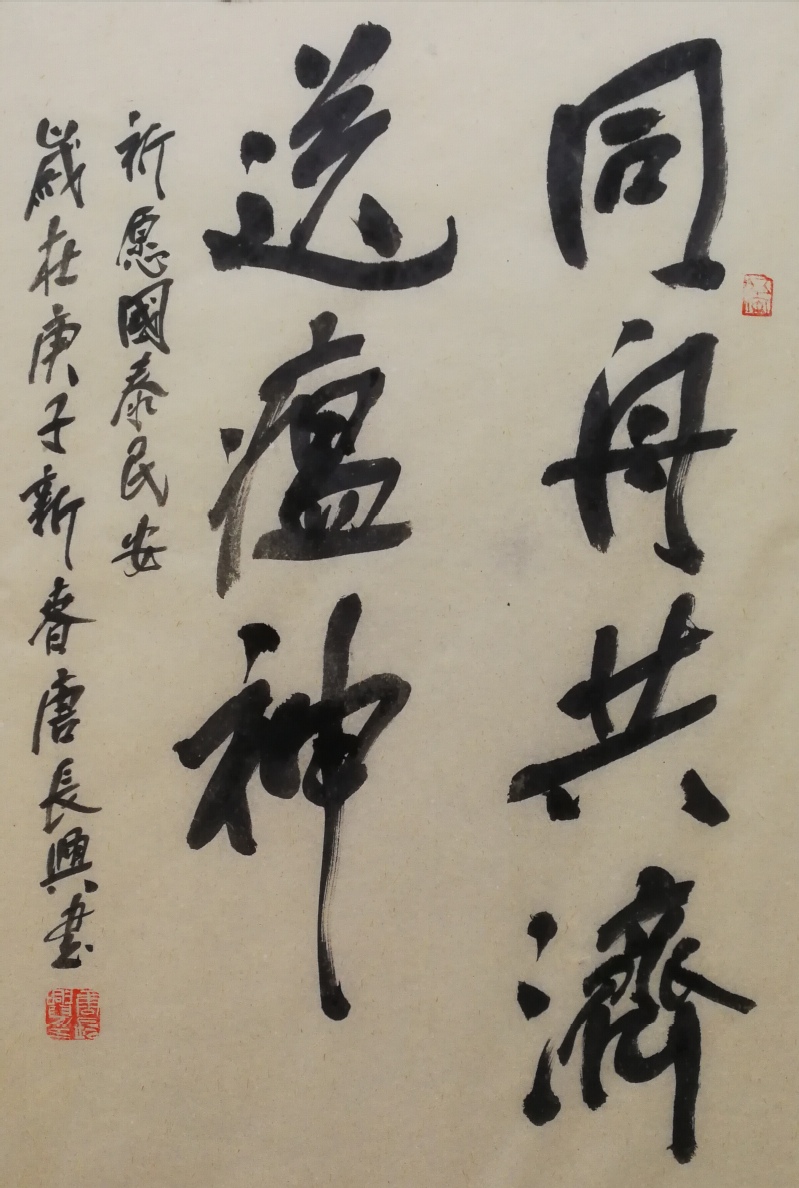 同舟共濟
送瘟神
祈愿國泰民安
歲在庚子新春唐長興書